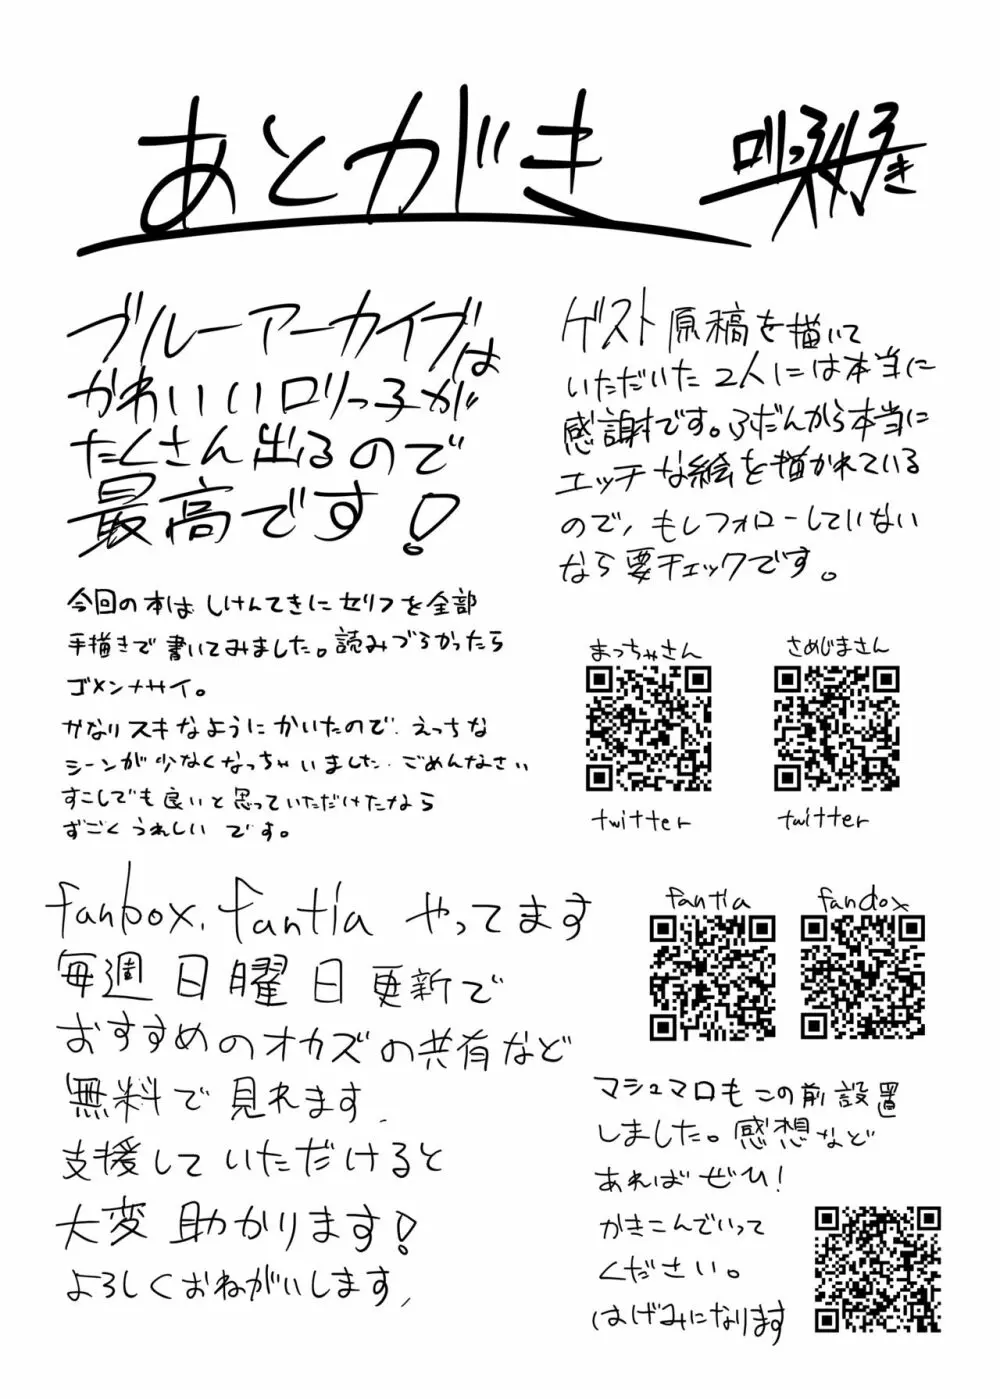 あとがき
ブルーアーカイブは
かわいいロリっ子が
たくさん出るので
最高です!
今回の本は しけんてきに セリフを全部
手描きで書いてみました。読みづらかったら
ゴメンナサイ。
かなりスキなようにかいたので、えっちな
シーンが少なくなっちゃいました、ごめんなさい
すこしでも良いと思っていただけたなら
すごくうれしいです。
ゲスト原稿を描いて
いただいた2人には本当に
感謝です。ふだんから本当に
エッチな絵を描かれている
ので、もしフォローしていない
なら要チェックです。
まっちゃさん
さめじまさん
twitter
twitter
fanbox、fantia やってます
毎週日曜日更新で
おすすめのオカズの共有など
無料で見れます、
支援していただけると
大変助かります!
よろしくおねがいします、
fantia
fanbox
マシュマロもこの前設置
しました。感想など
あればぜひ!
かきこんでいって
ください。
はげみになります